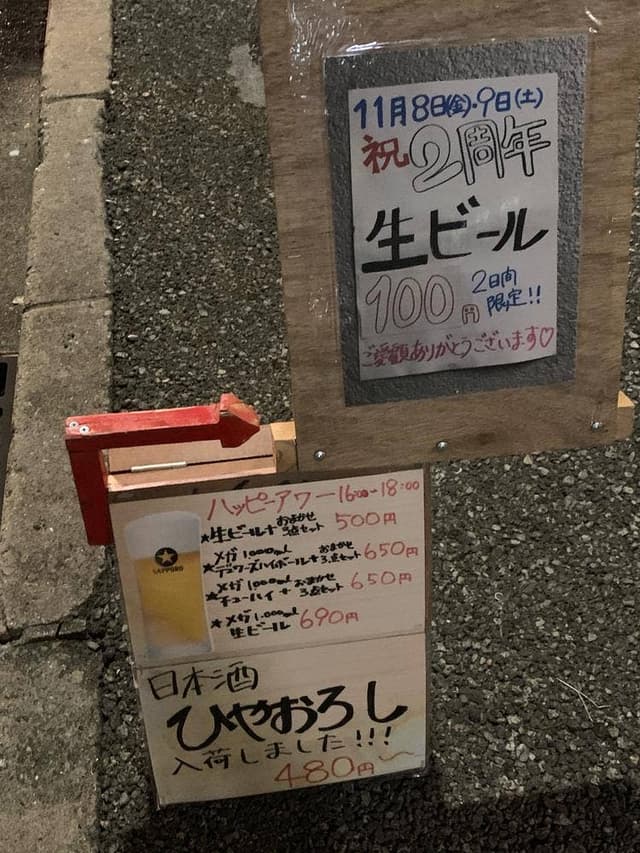 11月8日(金)・9日(土)
祝2周年
生ビール
100円
2日間
限定!!
ご愛顧ありがとうございます♡
ハッピーアワー16:00~18:00
★生ビール+おまかせ3点セット 500円
★メガ1000ml デュワーズハイボール+おまかせ3点セット 650円
★メガ1000ml チューハイ+おまかせ3点セット 650円
★メガ1.000ml 生ビール 690円
SAPPORO
日本酒
ひやおろし
入荷しました!!!
480円~